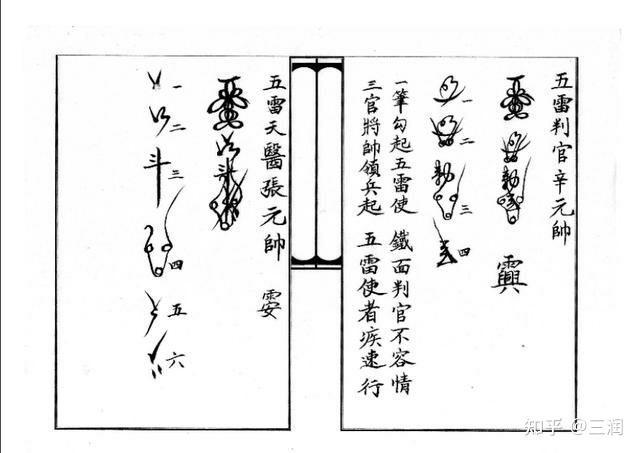 五雷判官辛元帥
勅
一
二
勅 三
四
一筆勾起五雷使 鐵面判官不容情
三官將帥領兵起 五雷使者疾速行
五雷天醫張元帥
以斗
一
以 二
斗 三
四
五
六
知乎 @三润